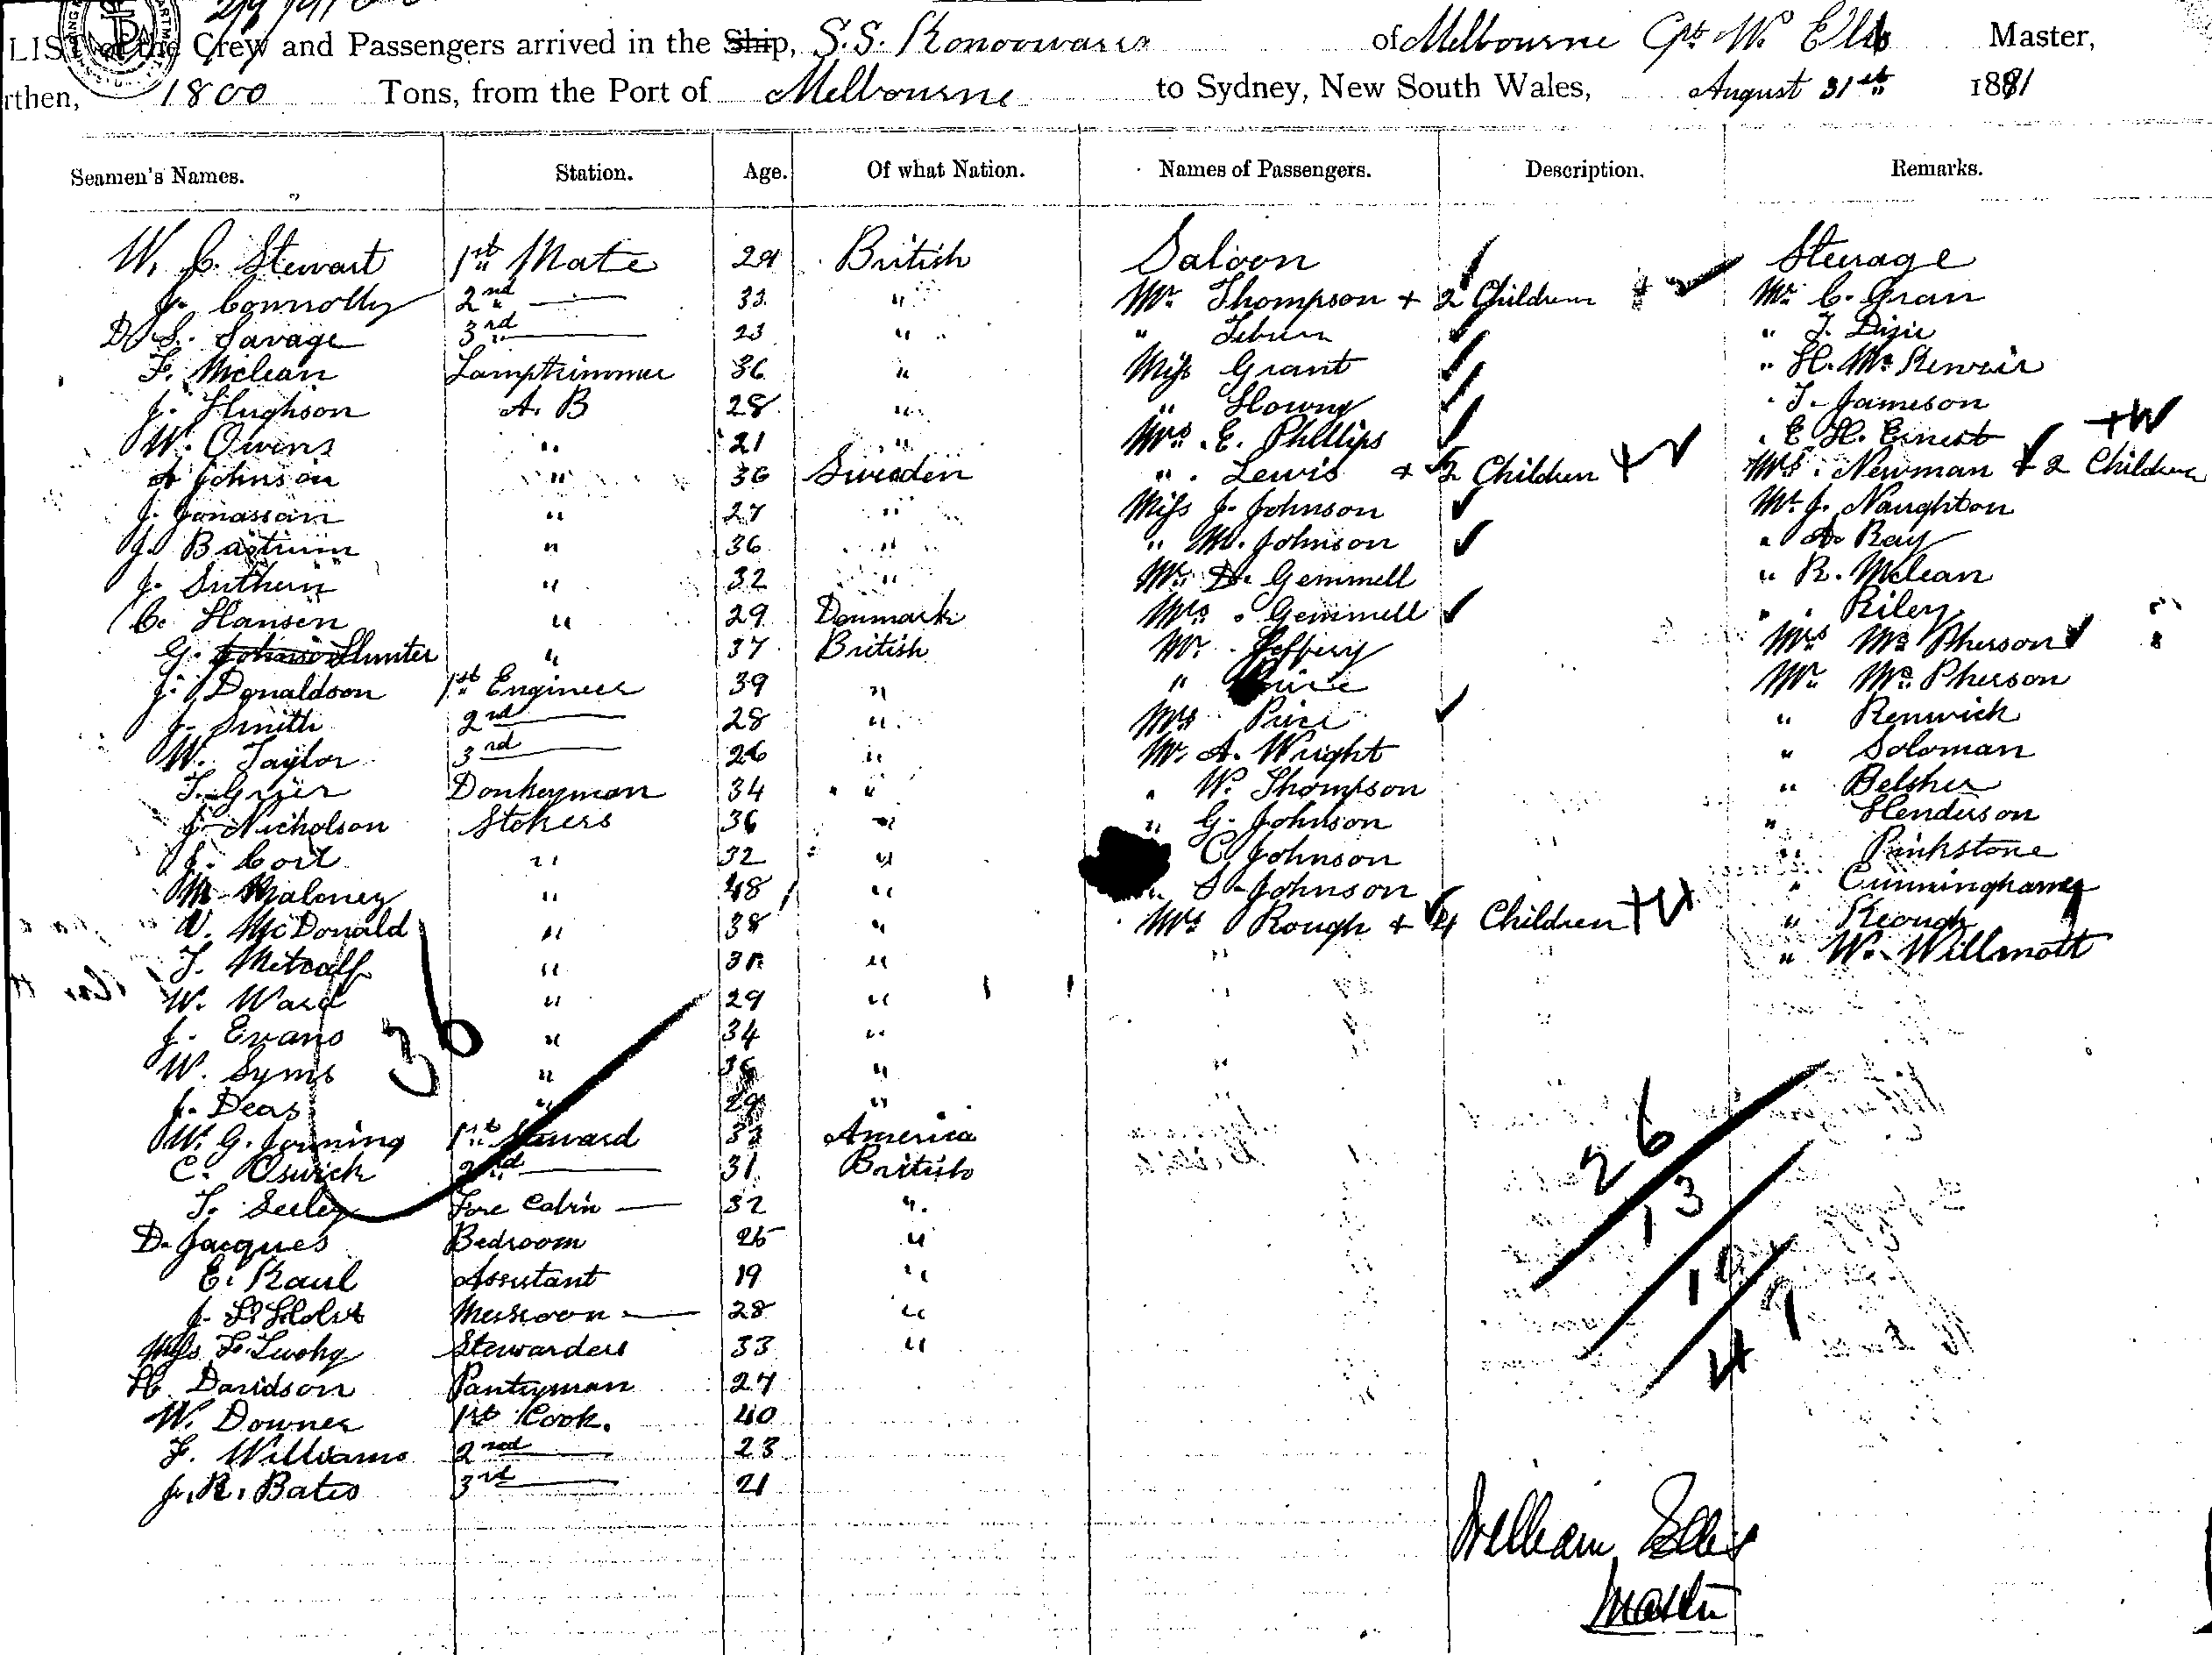 LIST of the Crew and Passengers arrived in the Ship, S.S. Konoowarra of Melbourne Cpt W. Ellis Master,
rthen, 1800 Tons, from the Port of Melbourne to Sydney, New South Wales, August 31st 1881
Seamen's Names. Station. Age. Of what Nation. Names of Passengers. Description. Remarks.
W. C. Stewart 1st Mate 29 British Saloon Steerage
J. Connolly 2nd — 33 " Mr. Thompson + 2 Children + Mr C. Gran
D. S. Savage 3rd — 23 " " "
F. Mclean Lamptrimmer 36 " Miss Grant " H. Mc
J. Hughson A. B 28 " " T. Jameson
W. Owens " 21 " Mrs. E. Phillips E. H. Ernest
A Johnson " 36 Sweden " Lewis + 2 Children + Mrs. Newman + 2 Children
J. Jonassan " 27 " Miss J. Johnson Mr. J. Naughton
J. " 36 " " M. Johnson " A. Ray
J. " 32 " Mr. D. Gemmell " R. Mclean
C. Hansen " 29 Denmark Mrs. Gemmell " Riley
G. Johnson Hunter " 37 British Mr. Jeffery Mrs McPherson
J. Donaldson 1st Engineer 39 " " Price Mr. McPherson
J. Smith 2nd — 28 " Mrs Price " Renwick
W. Taylor 3rd — 26 " Mr. A. Wright " Soloman
T. Grier Donkeyman 34 " " W. Thompson " Belcher
J. Nicholson Stokers 36 " " G. Johnson " Henderson
J. " 32 " C. Johnson " Pinkstone
M. Maloney " 48 " " S. Johnson " Cunningham
W. McDonald " 38 " Mrs Rough + 4 Children + " Keough
T. Metcalf " " " W. Willmott
W. Ward " 29 "
J. Evans " 34 "
36
W. Syms " 36 "
J. Deas " 29 "
W. G. Jenning 1st Steward 33 America
26
C. Oswick 2nd — 31 British
13
T. Seeley Fore Cabin — 32 "
D. Jacques Bedroom 25 "
E. Raul Assistant 19 "
J. Messroom — 28 "
Miss F. Stewardess 33 "
H. Davidson Pantryman 27
W. Downer 1st Cook. 40
F. Williams 2nd — 23
J. R. Bates 3rd — 21
William Ellis
Master